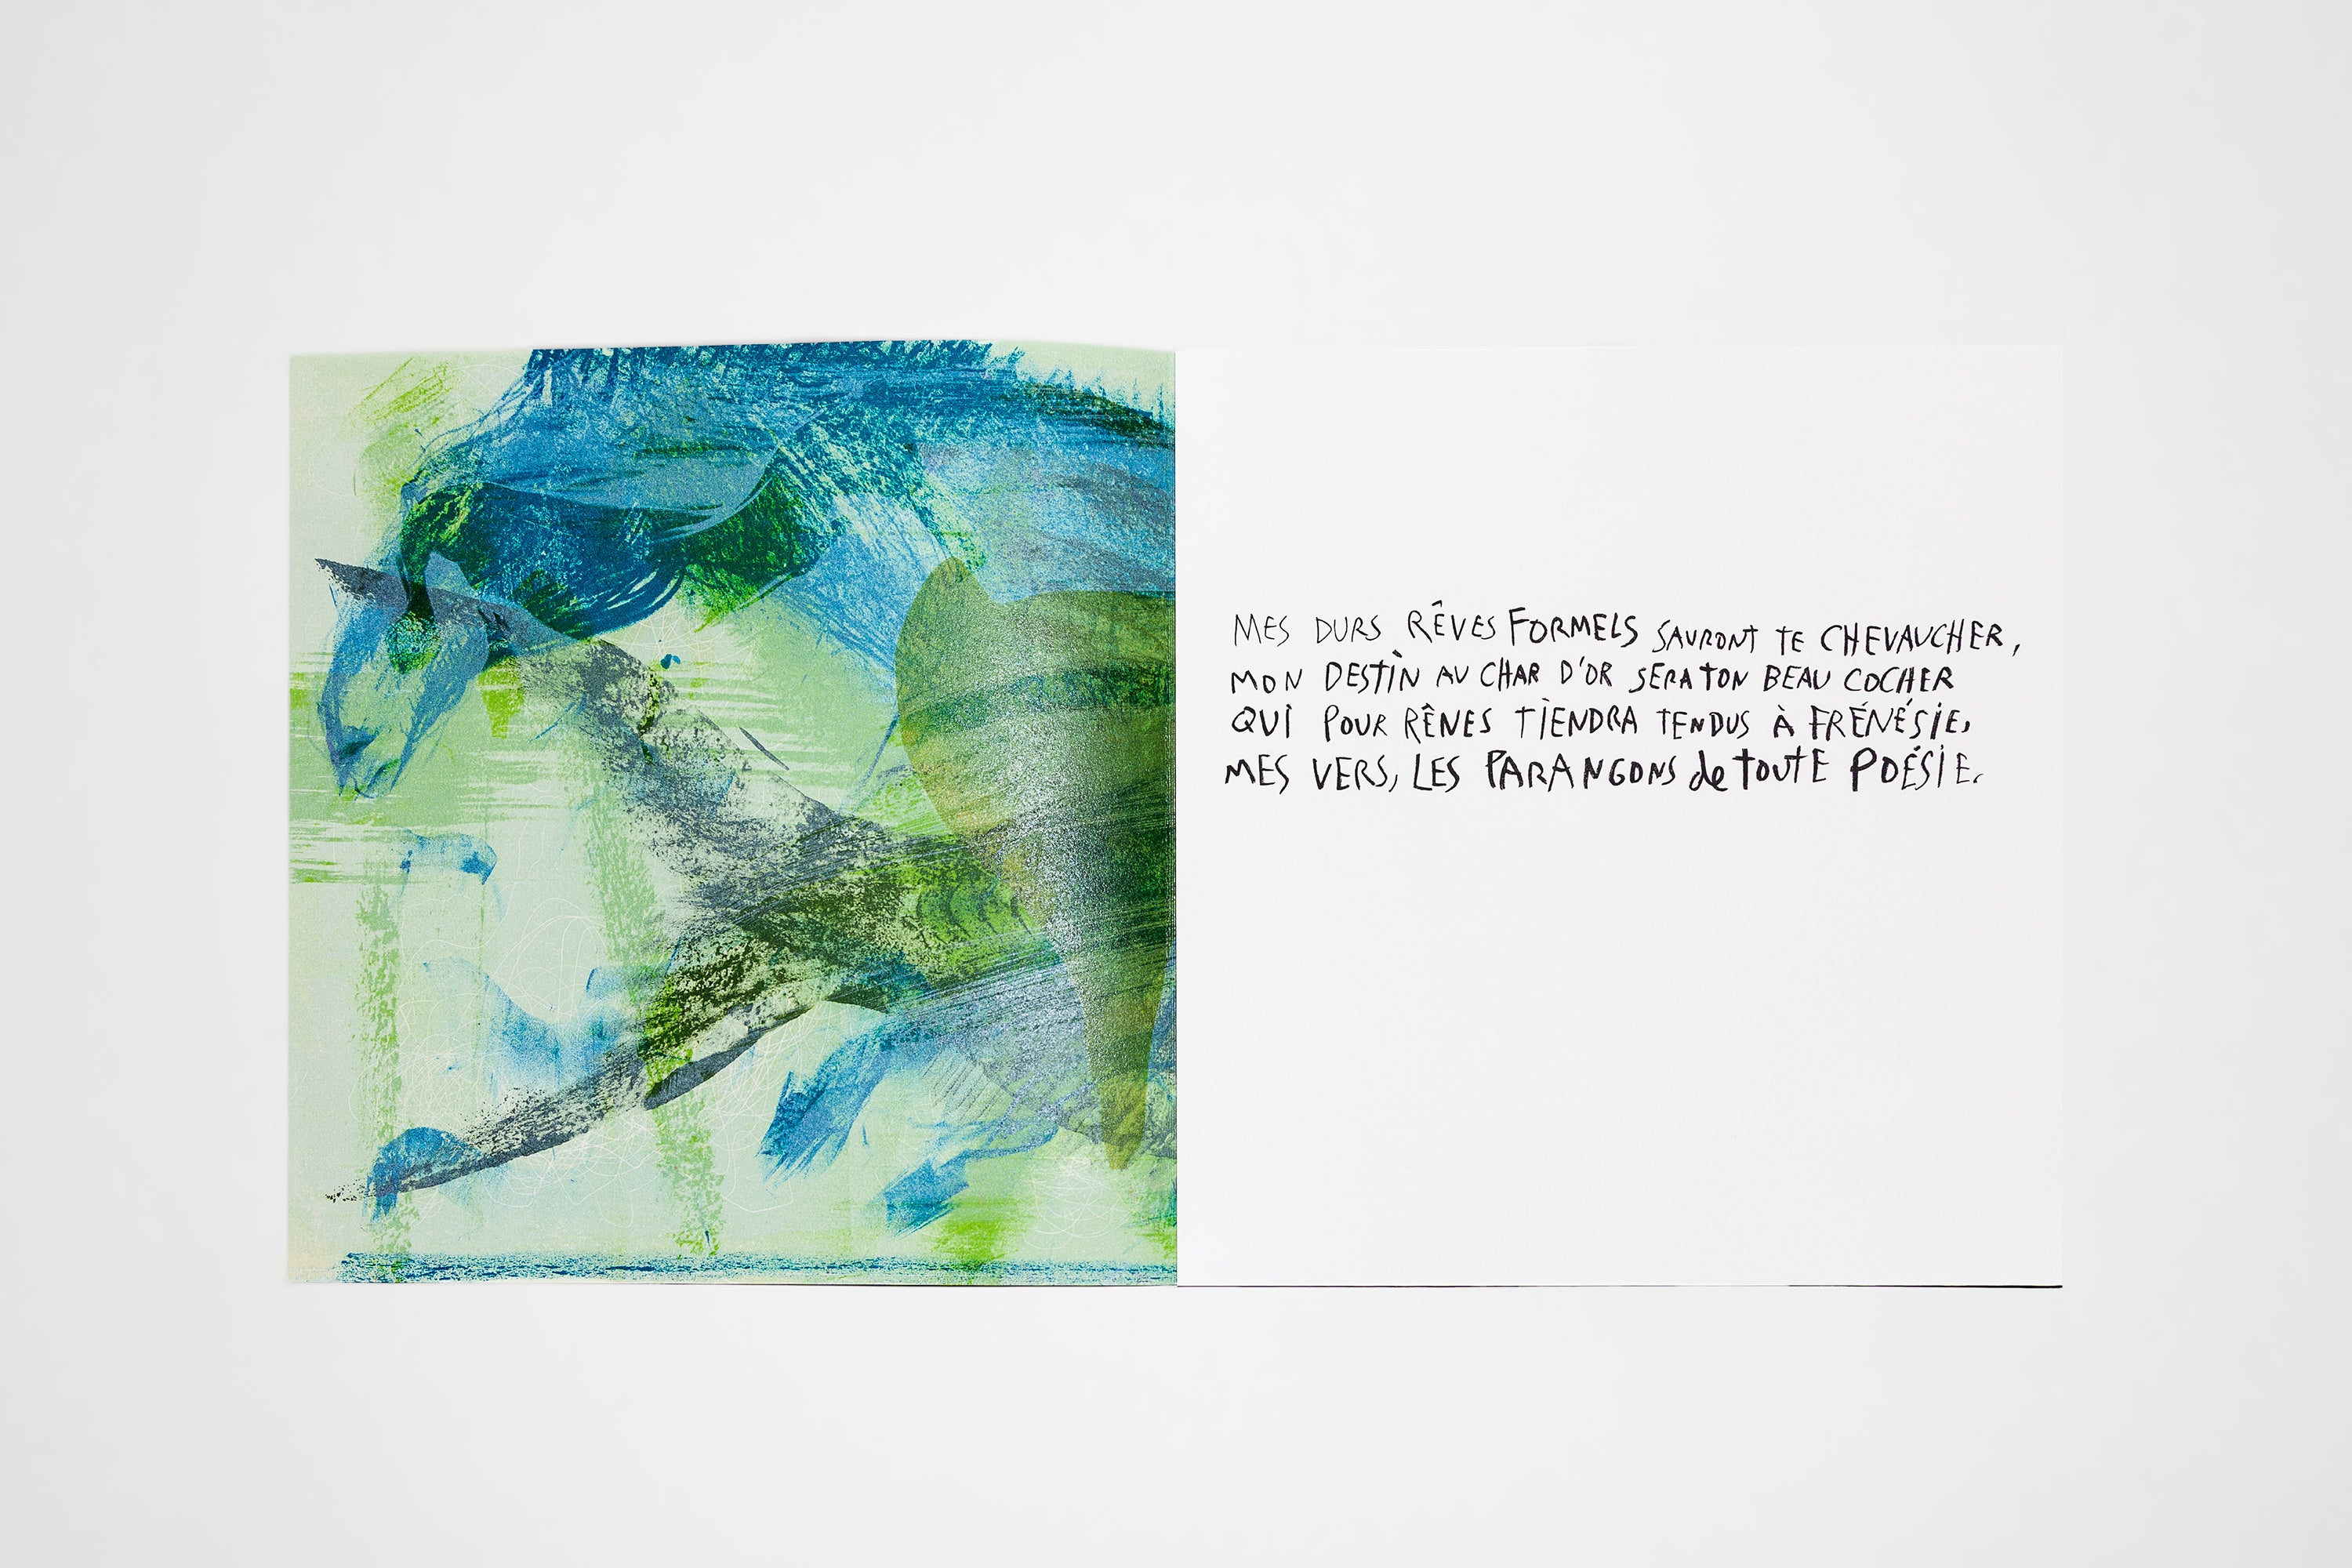 MES DURS RÊVES FORMELS SAURONT TE CHEVAUCHER,
MON DESTIN AU CHAR D'OR SERA TON BEAU COCHER
QUI POUR RÊNES TIENDRA TENDUS À FRÉNÉSIE,
MES VERS, LES PARANGONS de TOUTE POÉSIE.